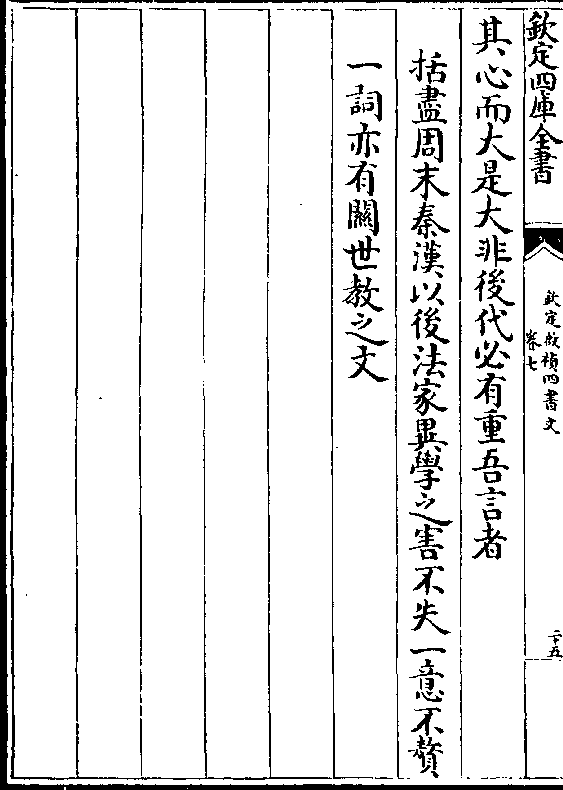 欽定四庫全書
欽定啟禎四書文
卷七
二十五
其心而大是大非後代必有重吾言者
括盡周末秦漢以後法家異學之害不失一意不贅
一詞亦有關世教之文